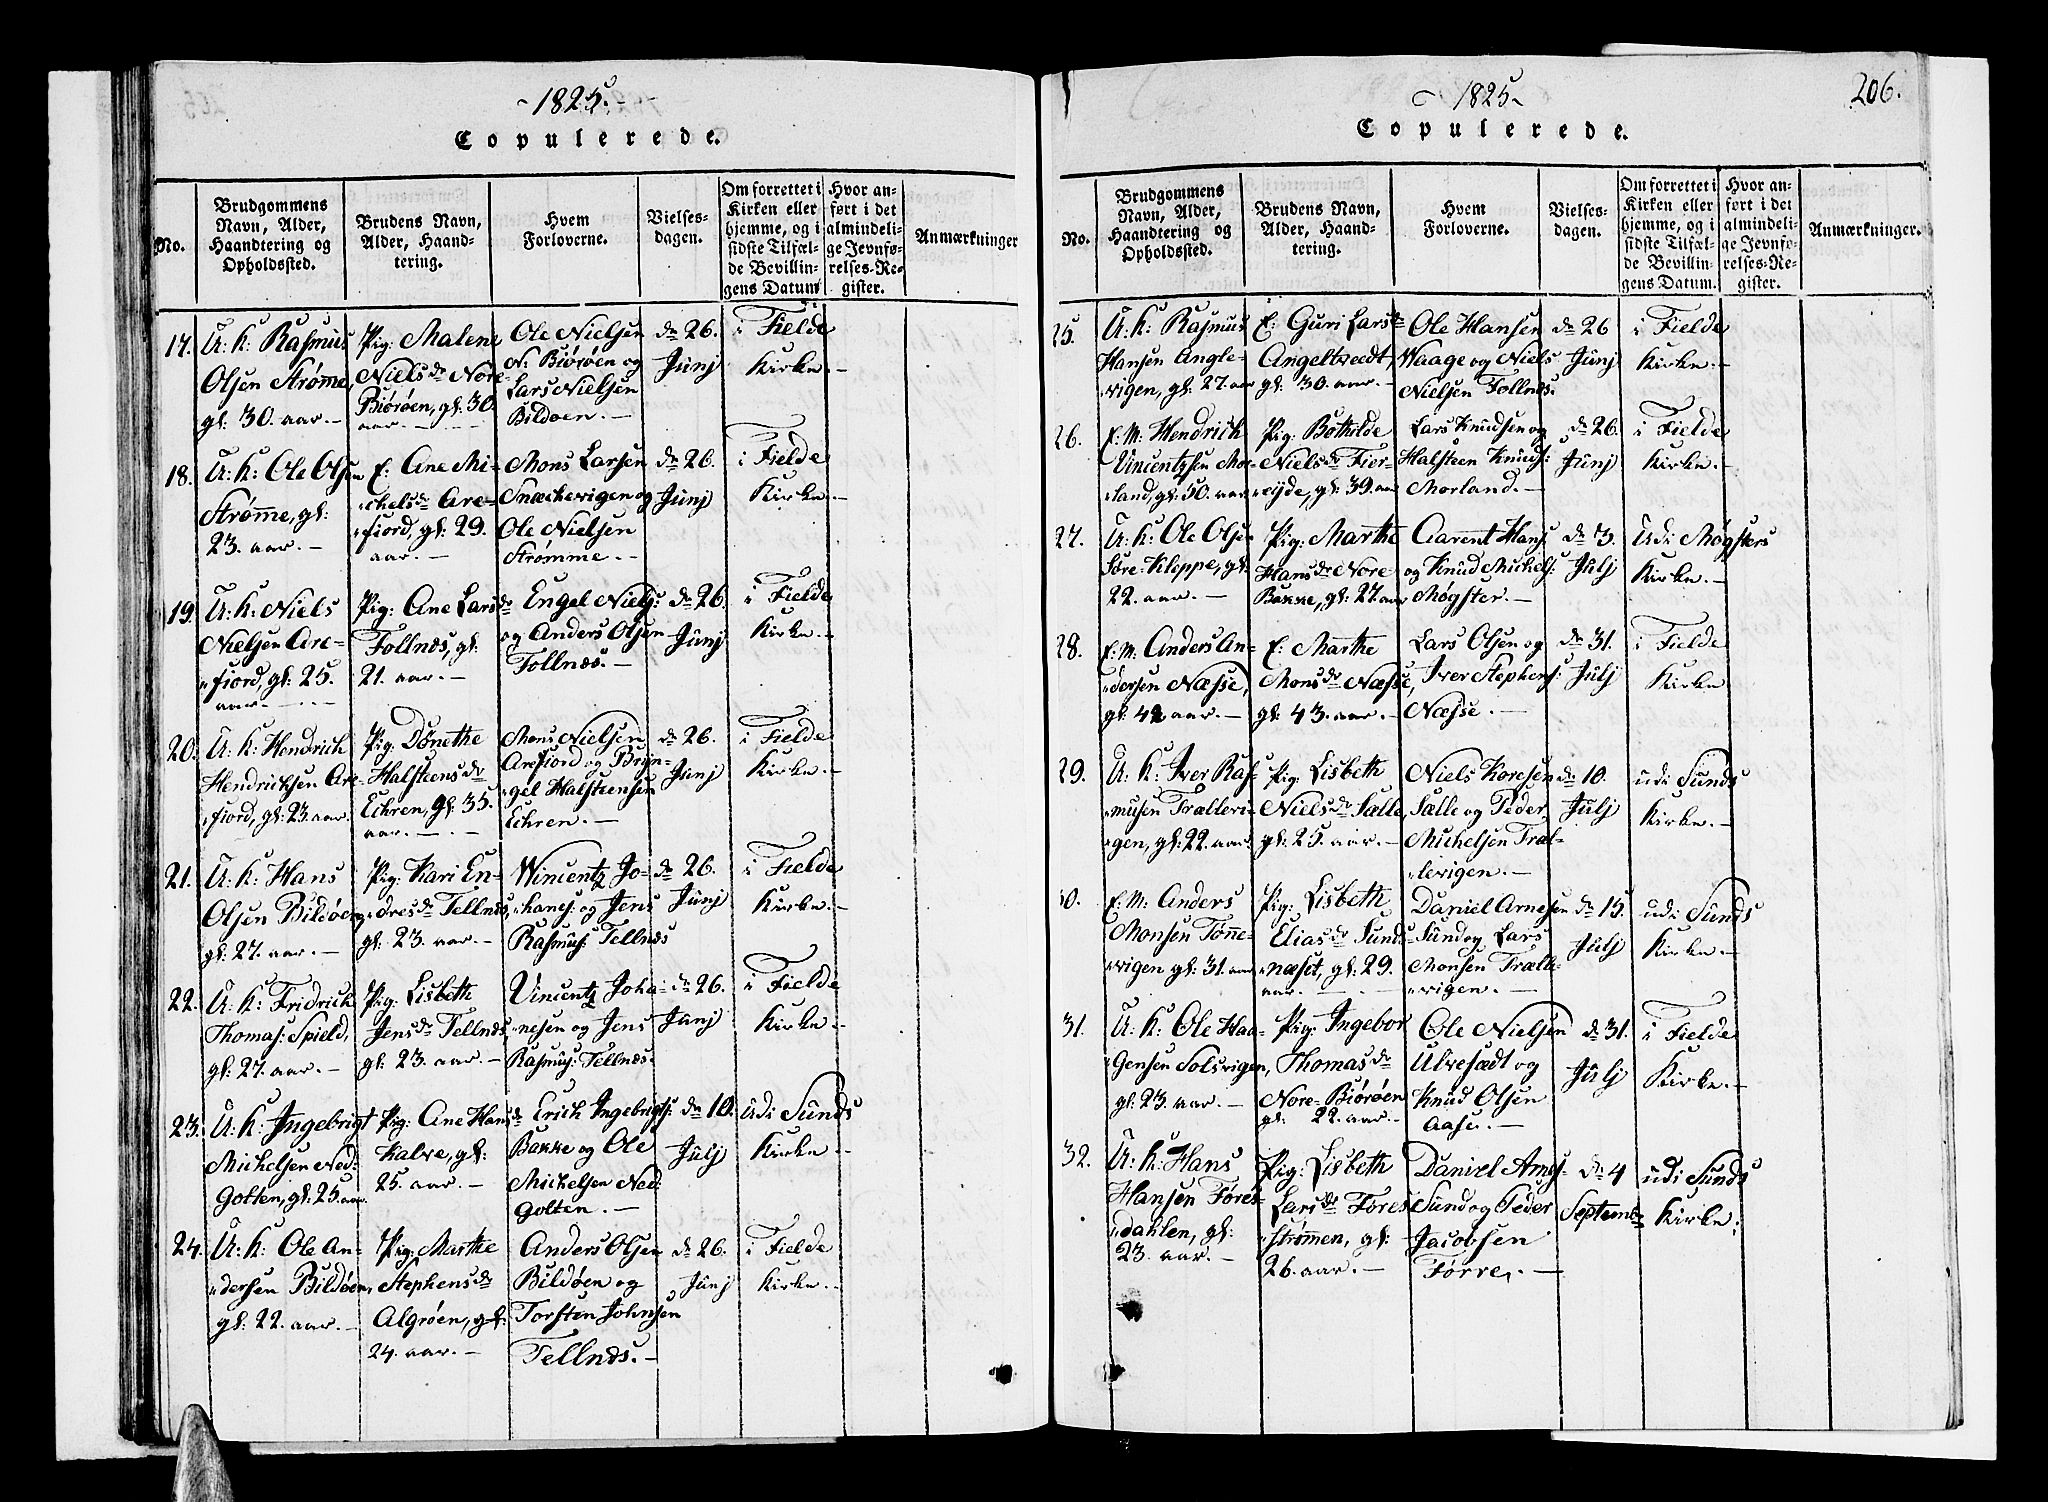 -1825.-
Copulerede.
No.
Brudgommens
Navn, Alder,
Haandtering og
Opholdssted.
Brudens Navn,
Alder, Haand-
tering.
Hvem
Forloverne.
Vielses-
dagen.
Om forrettet i
Kirken eller
hjemme, og i
sidste Tilfæl-
de Bevillin-
gens Datum
Hvor an-
ført i det
almindeli-
ge Jevnfø-
relses-Re-
gister.
Anmærkninger
17.
U: K: Rasmus
Olsen Strømme,
gl: 30. aar.-
Pig: Malene
Niels dr Nore-
Biørøen, gl: 30.
aar.-
Ole Nielsen
N: Biørøen og
Lars Nielsen
Bildøen.-
dn 26.
Junj
i Fielde
Kirke.-
18.
U: K: Ole Olsen
Strømme, gl:
23. aar.-
E: Ane Mi-
chels dr Are-
fiord, gl: 29.
aar.-
Mons Larsen
Snæckevigen og
Ole Nielsen
Strømme.-
dn 26.
Junj
i Fielde
Kirke.-
19.
U: K: Niels
Nielsen Are-
fiord, gl: 25.
aar.-
Pig: Ane Lars dr
Follnæs, gl:
21. aar.-
Engel Niels:
og Anders Olsen
Tollnæs.-
dn 26.
Junj
i Fielde
Kirke.-
20.
U: K: Hendrich
Hendrichsen Are-
fiord, gl: 23 aar.
Pig: Dønethe
Halsteens dr
Echren, gl: 35.
aar.-
Mons Nielsen
Arefiord og Bryn-
gel Halsteensen
Echren.-
dn 26.
Junj
i Fielde
Kirke.-
21.
U: K: Hans
Olsen Bildøen,
gl: 27. aar.-
Pig: Kari En-
dres dr Tellnæs,
gl: 23. aar.-
Wincentz Jo-
hanes: og Jens
Rasmus: Tellnæs
dn 26.
Junj
i Fielde
Kirke.-
22.
U: K: Fridrich
Thomas: Spield,
gl: 27. aar.-
Pig: Lisbeth
Jens dr Tellnæs,
gl: 23. aar.-
Vincentz Joha-
nesen og Jens
Rasmus: Tellnæs.
dn 26.
Junj
i Fielde
Kirke.-
23.
U: K: Ingebrigt
Michelsen Ned:
Gotten, gl: 25. aar.
Pig: Ane Hans dr
Kalve, gl:
25. aar.-
Erich Ingebrigts:
Bakke og Ole
Michelsen Ned:
Golten.-
dn 10.
Julj
udi Sunds
Kirke.-
24.
U: K: Ole An-
dersen Bildøen,
gl: 22. aar.-
Pig: Marthe
Stephens dr
Algrøen, gl:
24. aar.-
Anders Olsen
Bildøen og
Torsten Johnsen
Tellnæs.-
dn 26.
Junj
i Fielde
Kirke.-
1825.
206.
Copulerede.
No.
Brudgommens
Navn, Alder,
Haandtering og
Opholdssted.
Brudens Navn,
Alder, Haand-
tering.
Hvem
Forloverne.
Vielses-
dagen.
Om forrettet i
Kirken eller
hjemme, og i
sidste Tilfæl-
de Bevillin-
gens Datum.
Hvor an-
ført i det
almindeli-
ge Jevnfø-
relses-Re-
gister.
Anmærkninger.
25.
U: K: Rasmus
Hansen Angle-
vigen, gl: 27. aar
E: Guri Lars dr
Angeltveedt,
gl: 30. aar.-
Ole Hansen
Waage og Niels
Nielsen Follnæs.
dn 26
Junj
i Fielde
Kirke.-
26.
E: M: Hendrich
Vincentzsen Mor-
land, gl: 50. aar
Pig: Bothilde
Niels dr Fier-
eyde, gl: 39. aar
Lars Knudsen og
Halsteen Knuds:
Morland.-
dn 26.
Junj
i Fielde
Kirke.-
27.
U: K: Ole Olsen
Søre-Kleppe, gl:
22. aar.-
Pig: Marthe
Hans dr Nore
Bakke, gl: 27. aar
Aarent Hans:
og Knud Michels:
Møgster.-
dn 3.
Julj
Udi Møgsters
Kirke.-
28.
E: M: Anders An-
dersen Næsse,
gl: 42 aar.-
E: Marthe
Mons dr Næsse,
gl: 43. aar.-
Lars Olsen og
Iver Stephens:
Næsse.-
dn 31.
Julj
i Fielde
Kirke
29.
U: K: Iver Ras-
musen Trællevi-
gen, gl: 22. aar.
Pig: Lisbeth
Niels dr Sælle,
gl: 25. aar.-
Niels Koresen
Sælle og Peder
Michelsen Træl-
levigen.-
dn 10.
Julj
udi Sunds
Kirke.-
30.
E: M: Anders
Monsen Tønne-
vigen gl: 31. aar
Pig: Lisbeth
Elias dr Sunds-
næset, gl: 29.
aar.-
Daniel Arnesen
Sund og Lars
Monsen Trælle-
vigen.-
dn 15.
Julj
udi Sunds
Kirke.-
31.
U: K: Ole Haa-
Gensen Solsvigen,
gl: 23. aar.-
Pig: Ingebor
Thomas dr
Nore-Biørøen
gl: 22. aar.-
Ole Nielsen
Ulvesædt og
Knud Olsen
Aase.-
dn 31.
Julj
i Fielde
Kirke.-
32.
U: K: Hans
Hansen Føres-
dahlen, gl:
23. aar.-
Pig: Lisbeth
Lars dr Føres-
strømmen, gl:
26. aar.-
Daniel Arnes:
Sund og Peder
Jacobsen
Førre.-
dn 4
Septembr
udi Sunds
Kirke.